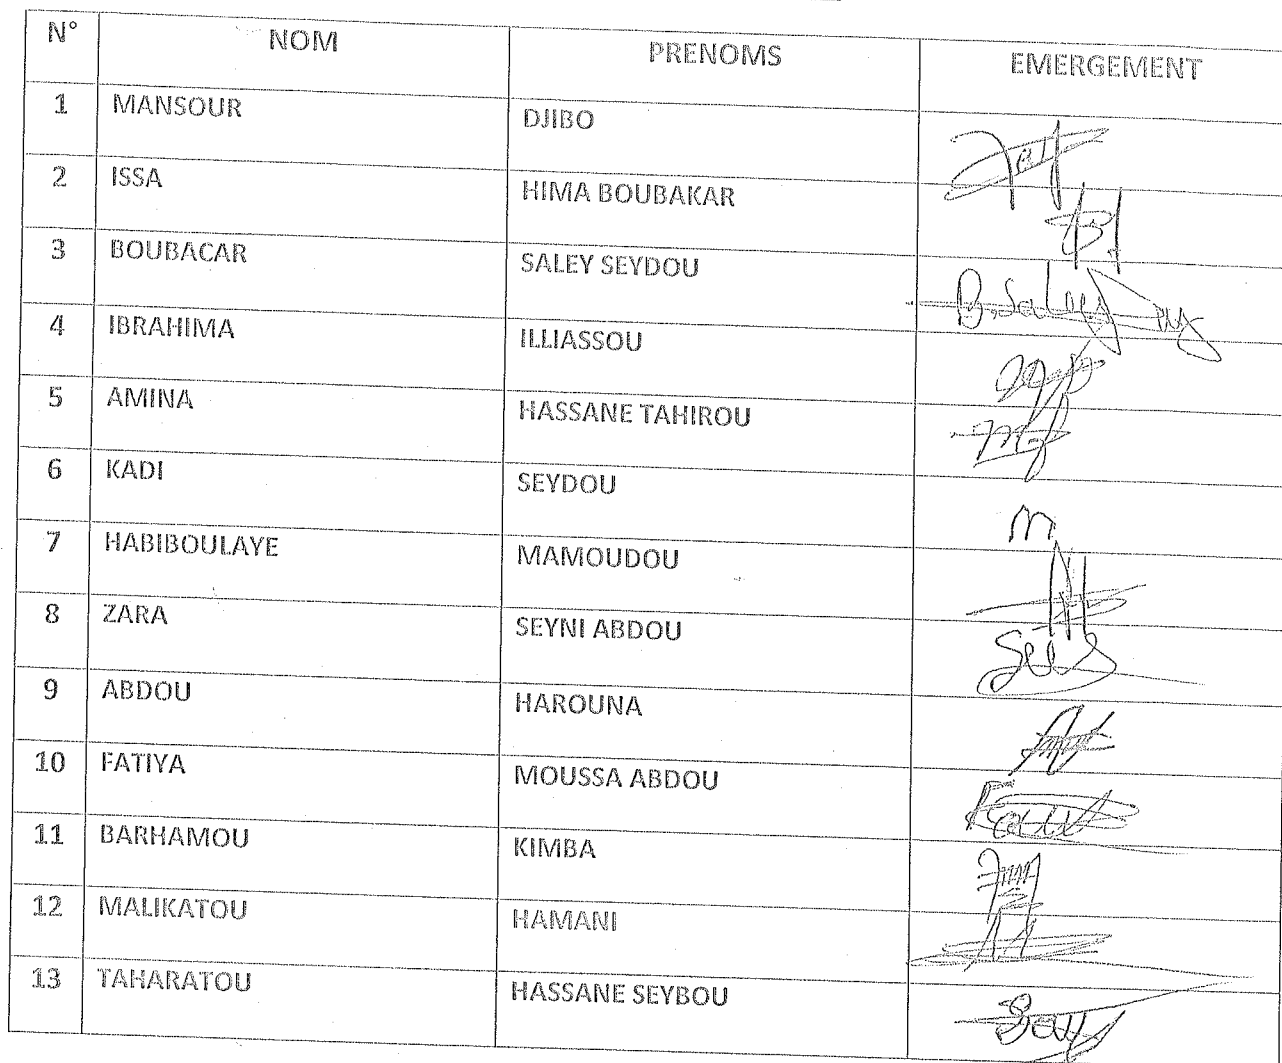 N° NOM PRENOMS EMERGEMENT
1 MANSOUR DJIBO
2 ISSA HIMA BOUBAKAR
3 BOUBACAR SALEY SEYDOU B.Saley
4 IBRAHIMA ILLIASSOU
5 AMINA HASSANE TAHIROU
6 KADI SEYDOU
7 HABIBOULAYE MAMOUDOU
8 ZARA SEYNI ABDOU
9 ABDOU HAROUNA
10 FATIYA MOUSSA ABDOU
11 BARHAMOU KIMBA
12 MALIKATOU HAMANI
13 TAHARATOU HASSANE SEYBOU